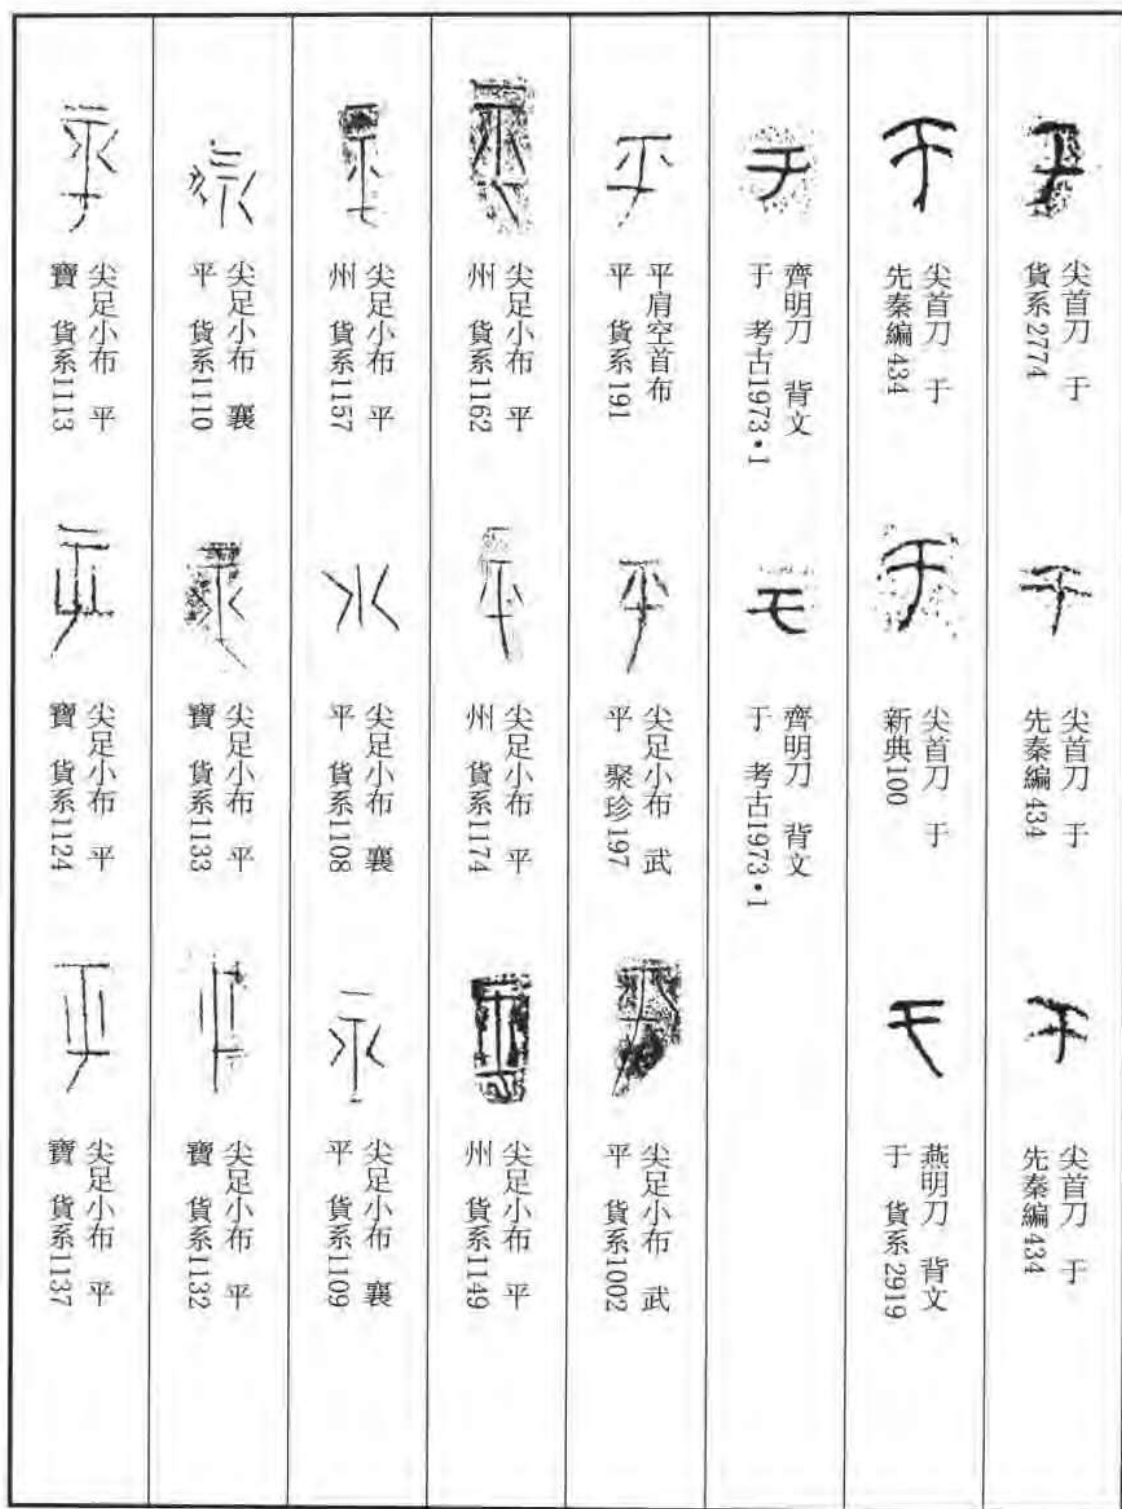 尖首刀 于
貨系2774
尖首刀 于
先秦編434
尖首刀 于
先秦編434
尖首刀 于
先秦編434
尖首刀 于
新典100
燕明刀 背文
于 貨系2919
齊明刀 背文
于 考古1973•1
齊明刀 背文
于 考古1973•1
平肩空首布
平 貨系191
尖足小布 武
平 聚珍197
尖足小布 武
平 貨系1002
尖足小布 平
州 貨系1162
尖足小布 平
州 貨系1174
尖足小布 平
州 貨系1149
尖足小布 平
州 貨系1157
尖足小布 襄
平 貨系1108
尖足小布 襄
平 貨系1109
尖足小布 襄
平 貨系1110
尖足小布 平
寶 貨系1133
尖足小布 平
寶 貨系1132
尖足小布 平
寶 貨系1113
尖足小布 平
寶 貨系1124
尖足小布 平
寶 貨系1137